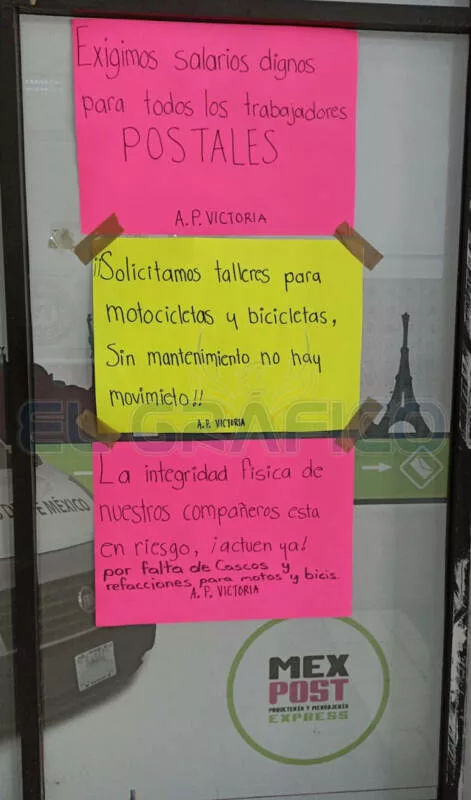 Exigimos salarios dignos
para todos los trabajadores
POSTALES
A.P. VICTORIA
¡¡Solicitamos talleres para
motocicletas y bicicletas,
Sin mantenimiento no hay
movimieto!!
A.P. VICTORIA
EL GRÁFICO
La integridad física de
nuestros compañeros esta
en riesgo, ¡actuen ya!
por falta de Cascos y
refacciones para motos y bicis
A.P. VICTORIA
DE MÉXICO
MEX
POST
PAQUETERÍA Y MENSAJERÍA
EXPRESS